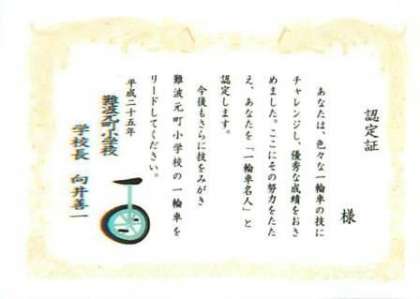 認定証
様
あなたは、色々な一輪車の技に
チャレンジし、優秀な成績をおさ
めました。ここにその努力をたた
え、あなたを「一輪車名人」と
認定します。
今後もさらに技をみがき
難波元町小学校の一輪車を
リードしてください。
平成二十五年
難波元町小学校
学校長 向井善一